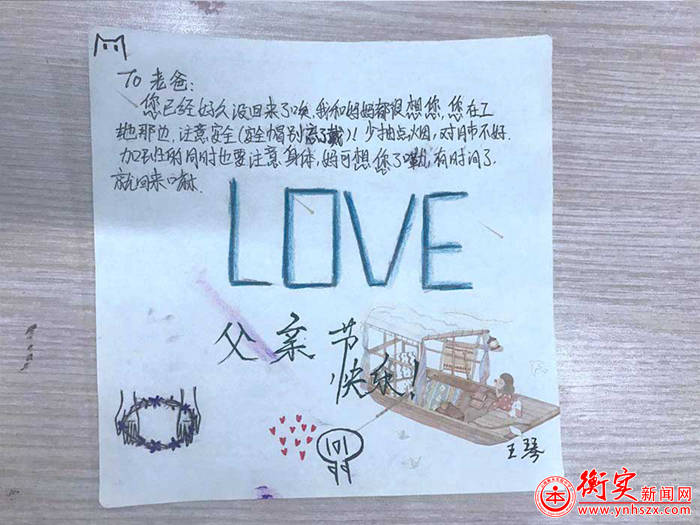 To 老爸:
您已经好久没回来了唉,我和妈妈都很想您,您在工
地那边,注意安全(安全帽别忘了戴)!少抽点火烟,对肺不好.
加班的同时也要注意身体,妈可想您了嘞,有时间了
就回来嘛.
LOVE
父亲节
快乐!
王琴
衡实新闻网
www.ynhszx.com